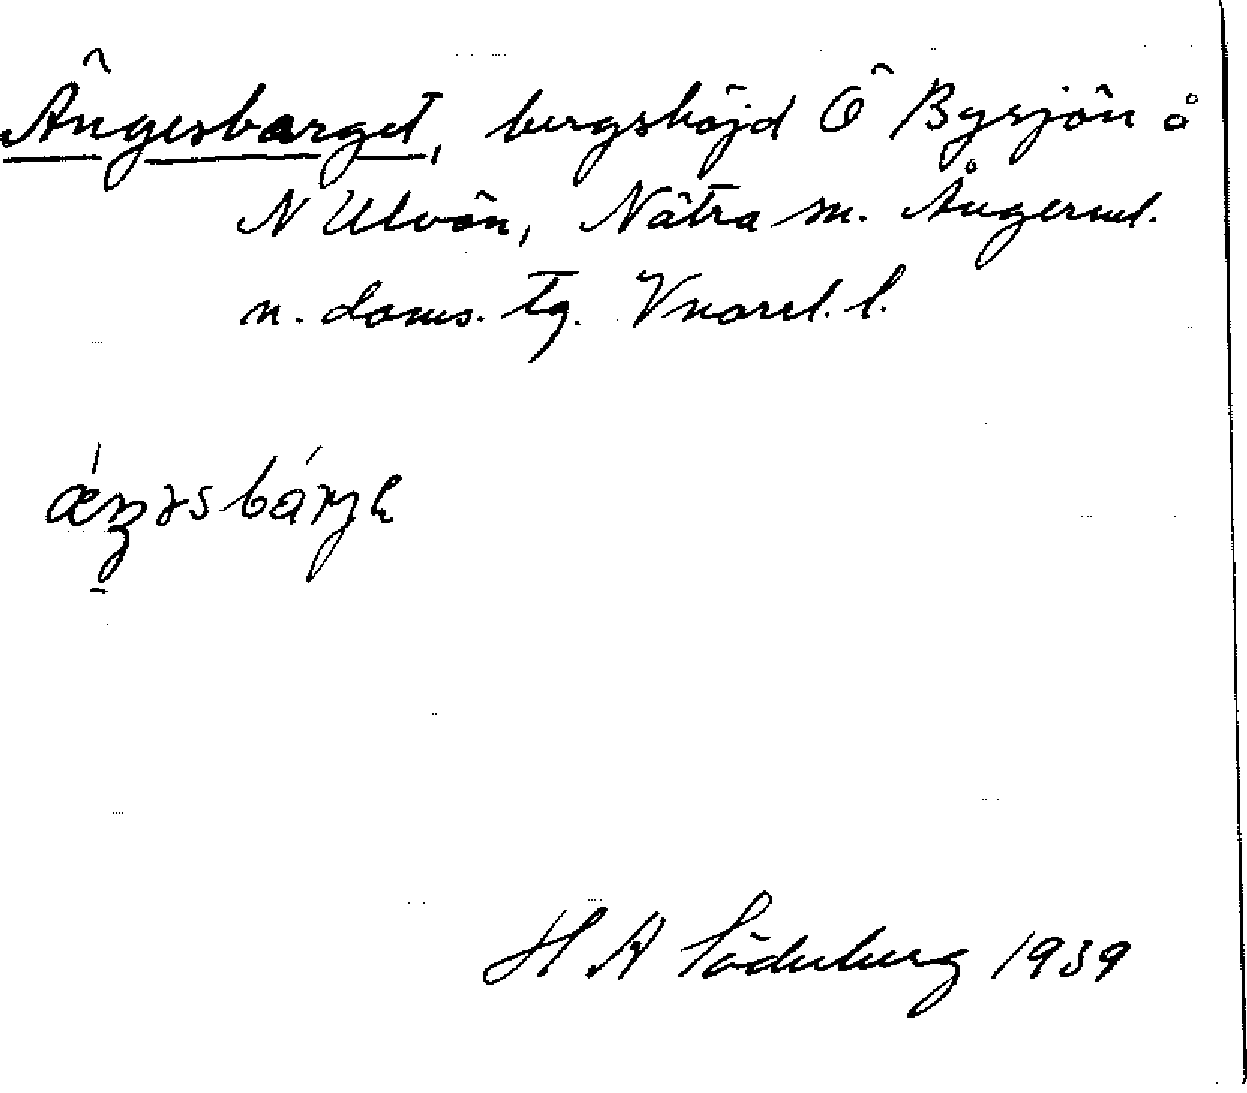 Ängesbarget, bergshöjd Ö Bysjön å
N Ulvön, Nätra sn. Ångerml.
n. doms. tg. Vnorrl. l.
H A Söderberg 1939